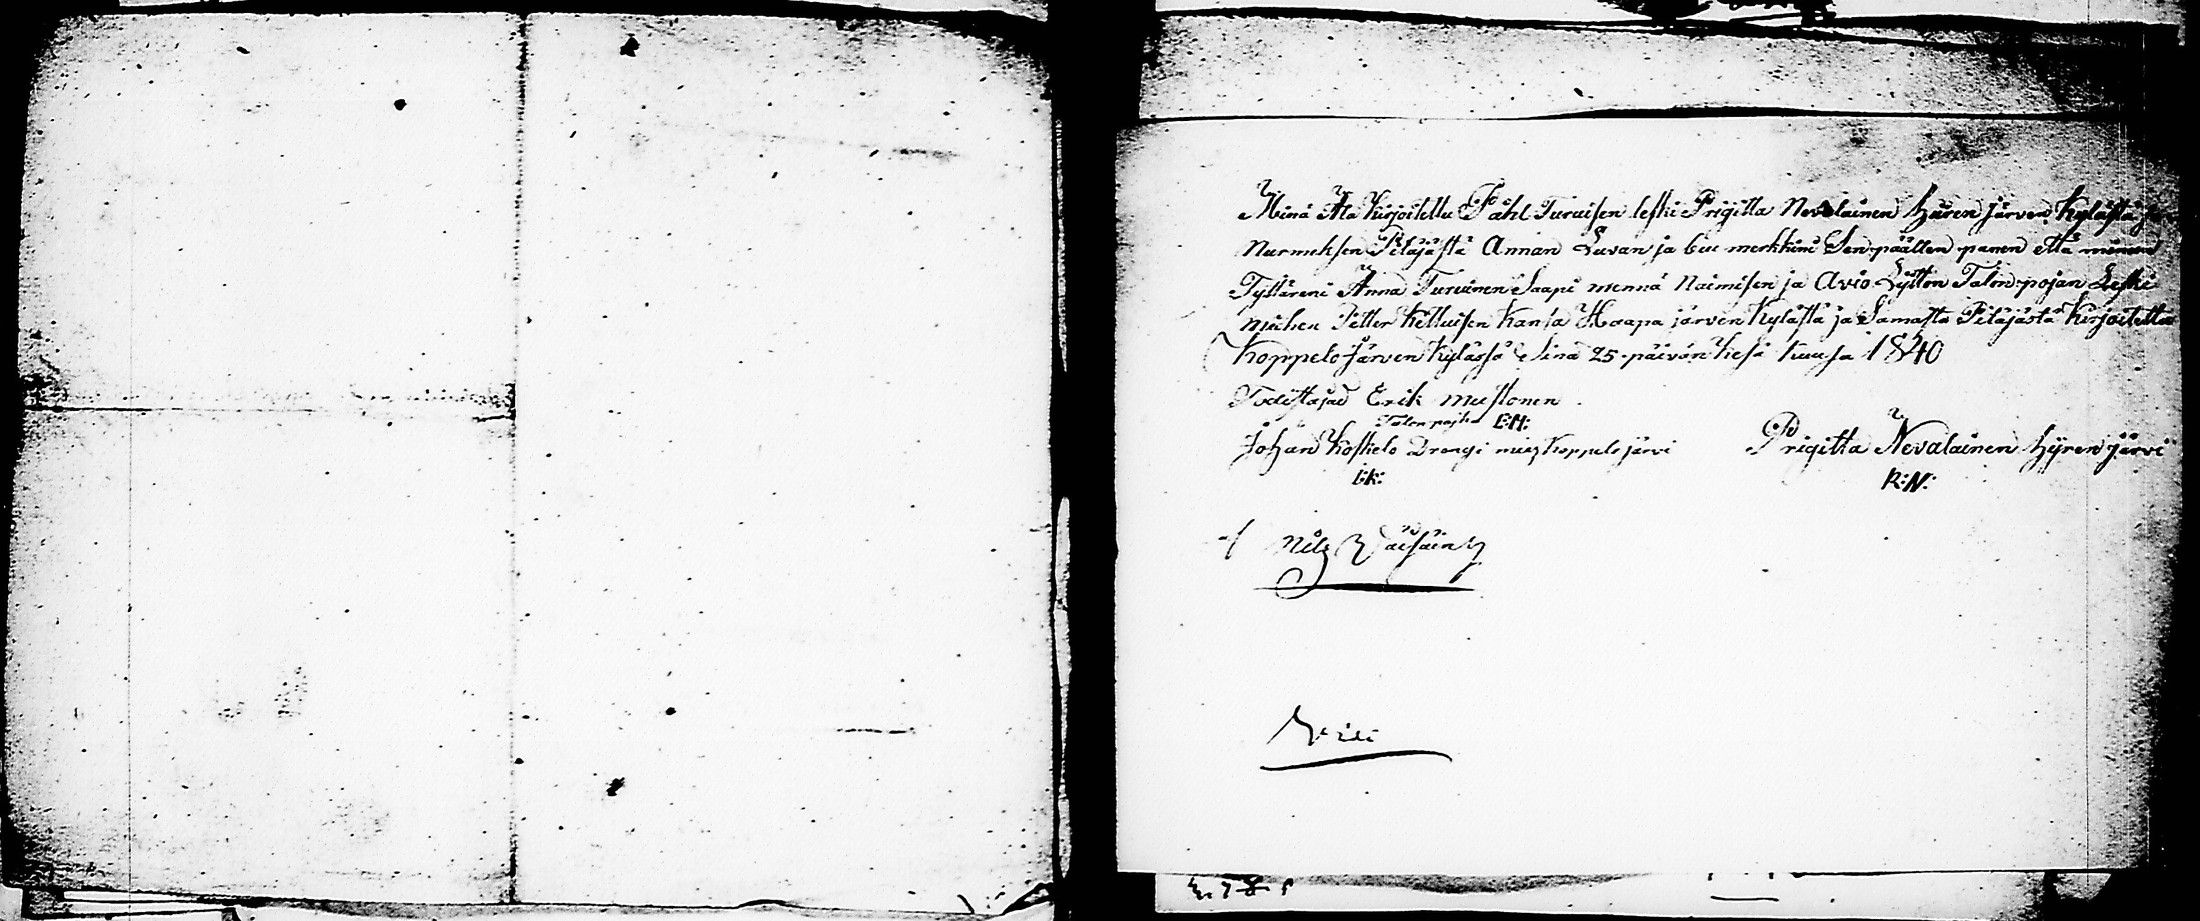 Minä Ala Kirjoitettu Påhl Turuisen leski Prigitta Nevalainen Hyren järven Kylästä ja
Nurmeksen Pitäjästä Annan Luvan ja buu merkkini Sen päällen panen että minun
Tyttäreni Anna Turuinen Saapi mennä Naimisen ja Avio Säätyn Talon pojan Leski
miehen Petter Kettuisen Kansa Haapa järven Kylästä ja Samasta Pitäjästä Kirjoitettu
Koppelo Järven Kylässä Sinä 25 päivän Kesä kuusa 1840
Todistajad Erik mustonen
Talon poika E:M:
Johan Koskelo Drengi mies Koppelo järvi
I:K:
Prigitta Nevalainen Hyren järvi
R:N:
af Nils Väisäin